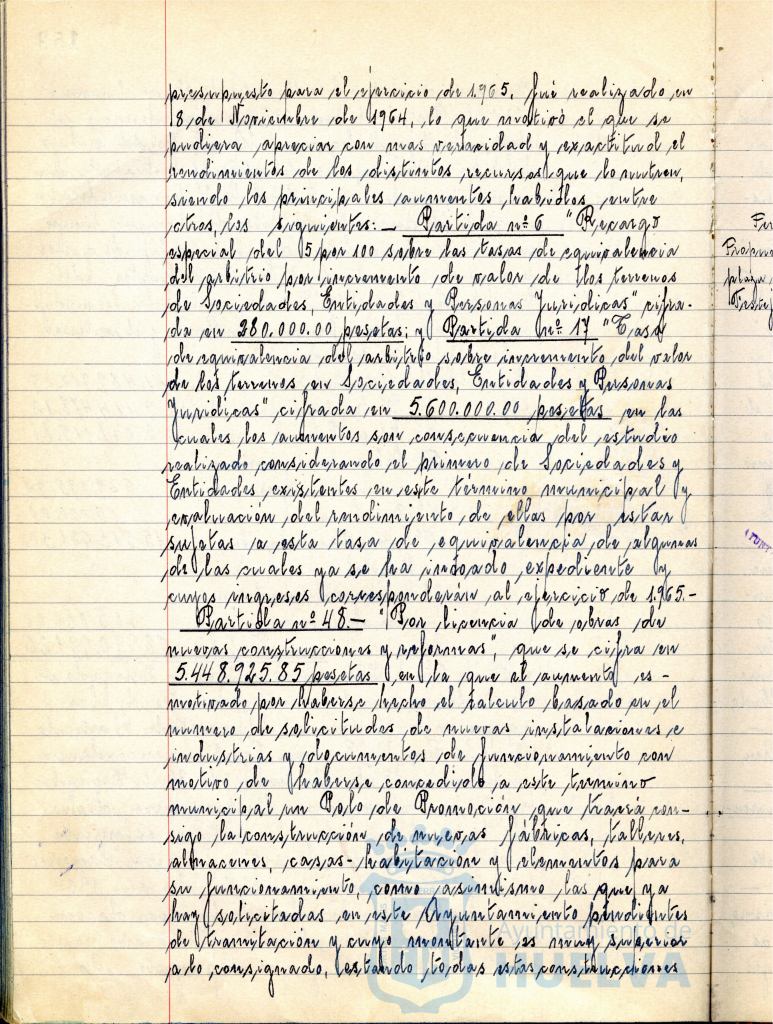 presupuesto para el ejercicio de 1.965, fué realizado en
18 de Noviembre de 1964, lo que motivó el que se
pudiera apreciar con mas veracidad y exactitud el
rendimientos de los distintos recursos que lo nutren,
siendo los principales aumentos habidos, entre
otros, los siguientes: — Partida nº 6 "Recargo
especial del 5 por 100 sobre las tasas de equivalencia
del arbitrio por incremento de valor de los terrenos
de Sociedades, Entidades y Personas Juridicas" cifra-
da en 280.000.00 pesetas; y Partida nº 17 "Tasa
de equivalencia del arbitrio sobre incremento del valor
de los terrenos en Sociedades, Entidades y Personas
Juridicas" cifrada en 5.600.000.00 pesetas en las
cuales los aumentos son consecuencia del estudio
realizado considerando el primero de Sociedades y
Entidades existentes en este término municipal y
evaluación del rendimiento de ellas por estar
sujetas a esta tasa de equivalencia de algunas
de las cuales ya se ha incoado expediente y
cuyos ingresos corresponderán al ejercicio de 1.965.—
Partida nº 48.— "Por licencia de obras de
nuevas construcciones y reformas", que se cifra en
5.448.925.85 pesetas en la que el aumento es-
motivado por haberse hecho el calculo basado en el
numero de solicitudes de nuevas instalaciones e
industrias y documentos de funcionamiento con
motivo de haberse concedido a este termino
municipal un Polo de Promoción que traerá con-
sigo la construcción de nuevas fábricas, talleres,
almacenes, casas-habitación y elementos para
su funcionamiento, como asimismo las que ya
hay solicitadas en este Ayuntamiento pendientes
de tramitación y cuyo montante es muy superior
a lo consignado, estando todas estas construcciones
Ayuntamiento de
HUELVA